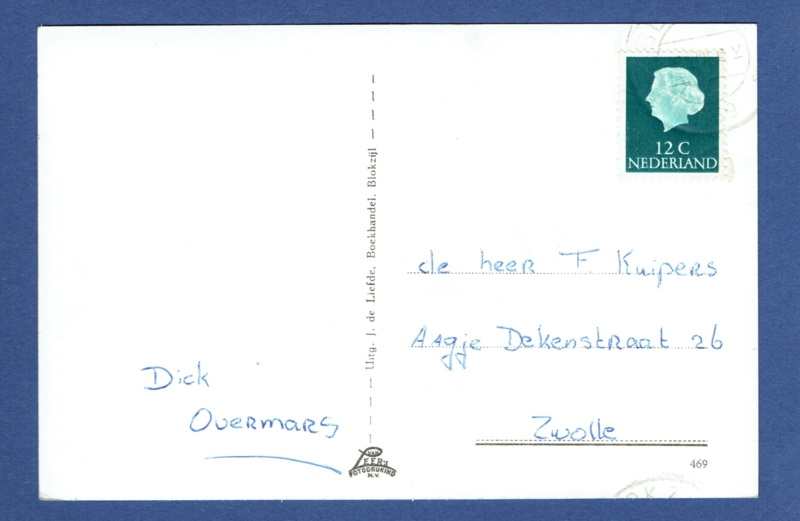 12 C
NEDERLAND
de heer F. Kuipers
Aagje Dekenstraat 26
Zwolle
469
Uitg. J. de Liefde, Boekhandel, Blokzijl
Dick
Overmars
VAN
LEER'S
FOTODRUKIND
N.V.